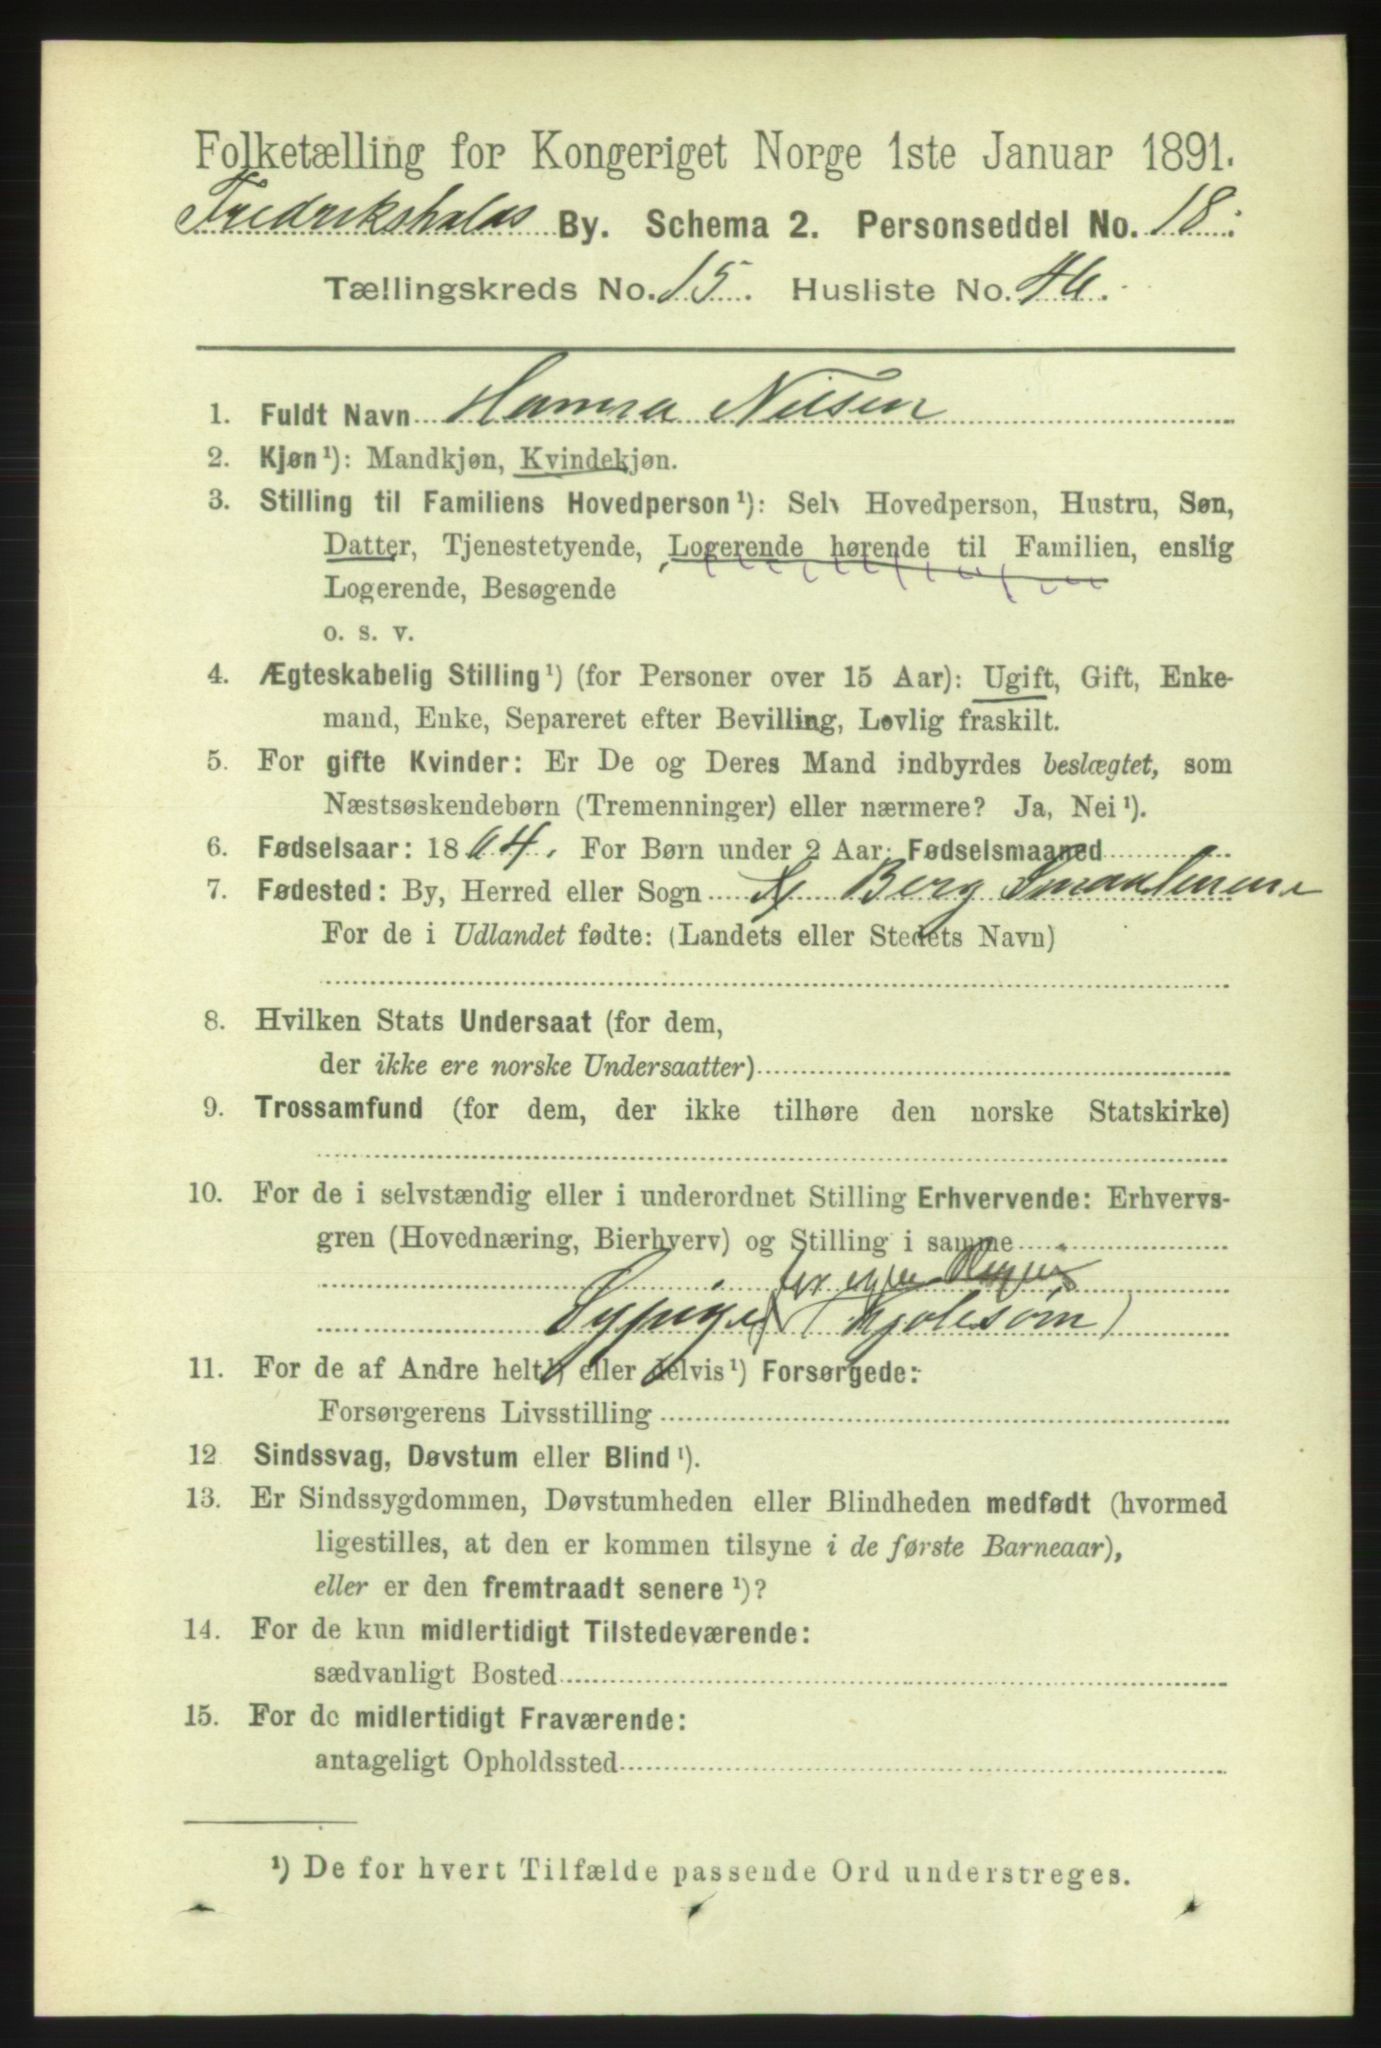 Folketælling for Kongeriget Norge 1ste Januar 1891.
Fredrikshalds By. Schema 2. Personseddel No. 18.
Tællingskreds No. 15. Husliste No. 46.
1. Fuldt Navn Hanna Nilsen
2. Kjøn¹): Mandkjøn, Kvindekjøn.
3. Stilling til Familiens Hovedperson¹): Selv Hovedperson, Hustru, Søn,
Datter, Tjenestetyende, Logerende hørende til Familien, enslig
Logerende, Besøgende
o. s. v.
4. Ægteskabelig Stilling¹) (for Personer over 15 Aar): Ugift, Gift, Enke-
mand, Enke, Separeret efter Bevilling, Lovlig fraskilt.
5. For gifte Kvinder: Er De og Deres Mand indbyrdes beslægtet, som
Næstsøskendebørn (Tremenninger) eller nærmere? Ja, Nei¹).
6. Fødselsaar: 1864. For Børn under 2 Aar: Fødselsmaaned
7. Fødested: By, Herred eller Sogn Berg Smaalenene
For de i Udlandet fødte: (Landets eller Stedets Navn)
8. Hvilken Stats Undersaat (for dem,
der ikke ere norske Undersaatter)
9. Trossamfund (for dem, der ikke tilhøre den norske Statskirke)
10. For de i selvstændig eller i underordnet Stilling Erhvervende: Erhvervs-
gren (Hovednæring, Bierhverv) og Stilling i samme
for egen
Sypige (Kjolesøm)
11. For de af Andre helt¹) eller delvis¹) Forsørgede:
Forsørgerens Livsstilling
12 Sindssvag, Døvstum eller Blind¹).
13. Er Sindssygdommen, Døvstumheden eller Blindheden medfødt (hvormed
ligestilles, at den er kommen tilsyne i de første Barneaar),
eller er den fremtraadt senere¹)?
14. For de kun midlertidigt Tilstedeværende:
sædvanligt Bosted
15. For de midlertidigt Fraværende:
antageligt Opholdssted
¹) De for hvert Tilfælde passende Ord understreges.